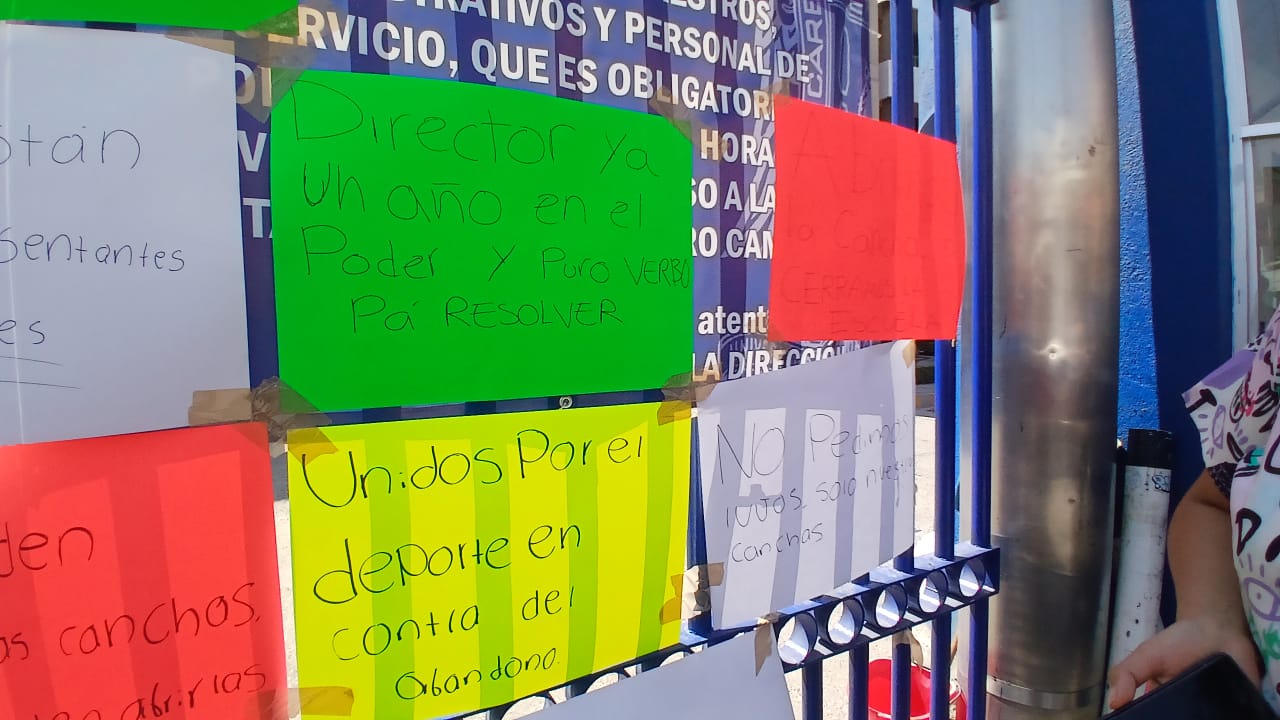 STROS,
STRATIVOS Y PERSONAL DE
ERVICIO, QUE ES OBLIGATOR
HORA
SO A LA
RO CÁM
atent
LA DIRECCIÓ
CARE
otán
sentantes
es
Director ya
un año en el
Poder y Puro VERBO
Pá RESOLVER
la Cancha
CERRAMOS LA
ESCUELA
den
as canchas,
abrirlas
Unidos Por el
deporte en
contra del
abandono.
No Pedimos
lujos solo nuestras
canchas